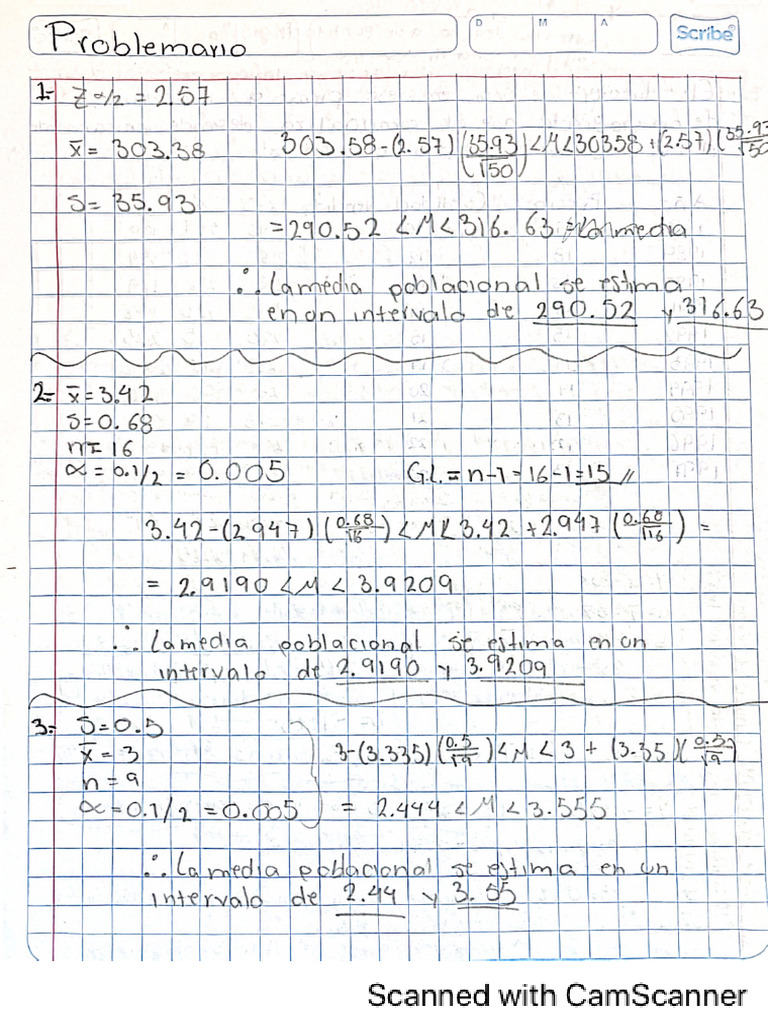 Problemario
D M A
Scribe
1- Z α/2 = 2.57
x̄ = 303.38
303.58-(2.57)(35.93/√50)<M<30358+(2.57)(35.93/√50
S= 35.93
=290.52 <M<316.63 media
∴ La media poblacional se estima
en un intervalo de 290.52 y 316.63
2- x̄=3.42
S=0.68
n= 16
α = 0.1/2 = 0.005 G.L.= n-1=16-1=15 //
3.42-(2.947)(0.68/√16)<M<3.42+2.947(0.68/√16) =
= 2.9190 <M < 3.9209
∴ La media poblacional se estima en un
intervalo de 2.9190 y 3.9209
3- S=0.5
x̄=3
3-(3.335)(0.5/√9)<M<3+(3.35)(0.5/√9)
n=9
α=0.1/2=0.005 = 2.444 <M<3.555
∴ La media poblacional se estima en un
intervalo de 2.44 y 3.55
Scanned with CamScanner